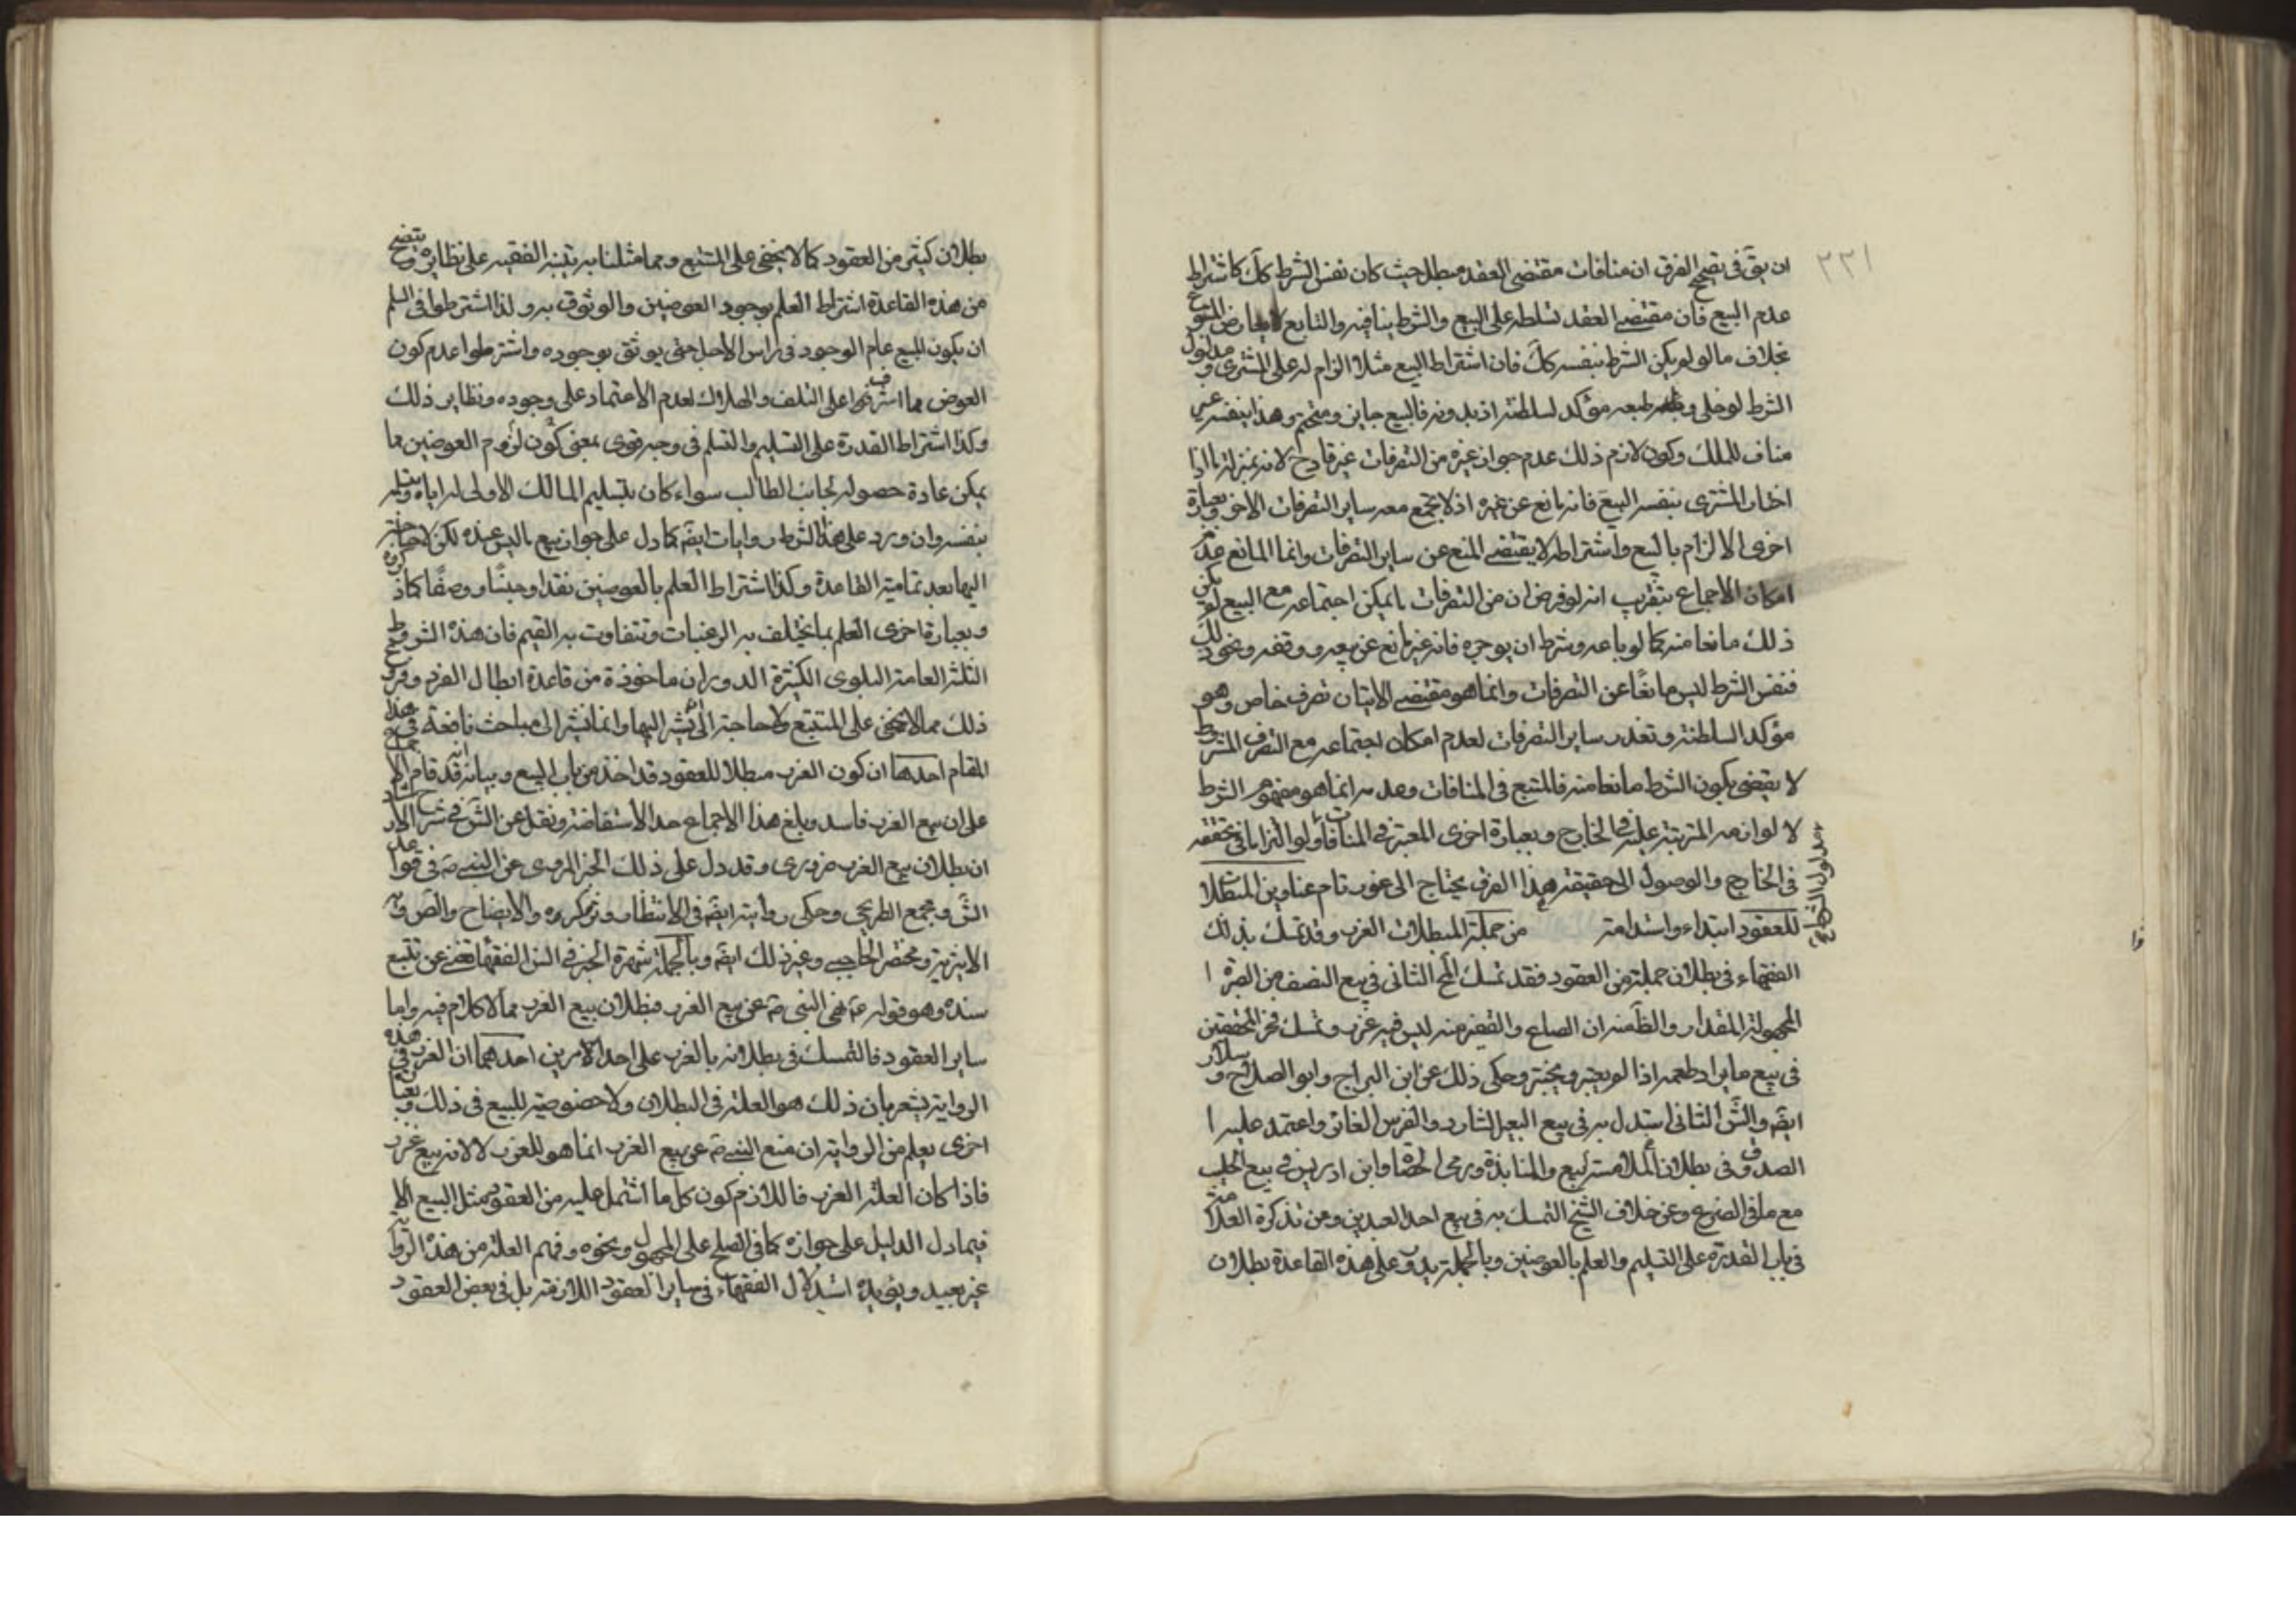 ٢٣١
ان يق في تصحيح الفرق ان منافات مقتضى العقد مبطل حيث كان نفس الشرط كك كاشتراط
عدم البيع فان مقتضى العقد تسلطه على البيع والشرط ينافيه والتابع لا يعارض المتبوع
بخلاف ما لو لم يكن الشرط بنفسه كك فان اشتراط البيع مثلا الزام له على المشترى ومدلول
الشرط لو خلى وطبعه مؤكد لسلطنته اذ بدونه فالبيع جايز ومتحتم وهذا بنفسه غير
مناف للملك وكون لازم ذلك عدم جواز غيره من التصرفات غير قادح لانه بمنزلة ما اذا
اختار المشترى بنفسه البيع فانه مانع عن غيره اذ لا يجتمع معه ساير التصرفات الاخر وبعبارة
اخرى الالزام بالبيع واشتراطه لا يقتضى المنع عن ساير التصرفات وانما المانع عدم
امكان الاجماع بتقريب انه لو فرض ان من التصرفات ما يمكن اجتماعه مع البيع لم يكن
ذلك مانعا منه كما لو باعه وشرط ان يوجره فانه غير مانع عن بيعه ووقفه ونحو ذلك
فنفس الشرط ليس مانعا عن التصرفات وانما هو مقتضى الاتيان تصرف خاص وهو
مؤكد السلطنة وتعذر ساير التصرفات لعدم امكان اجتماعه مع التصرف المشروط
لا يقضى بكون الشرط مانعا منه فالمتبع في المنافات وعدمه انما هو مفهوم الشرط
لا لوازمه المترتبة عليه في الخارج وبعبارة اخرى المعتبر في المنافات ولو التزاما في تحققه
مدلول الشرط
في الخارج والوصول الى حقيقة هذا الفرق يحتاج الى غور تام عناوين المبطلات
للعقود ابتداء واستدامة من جملة المبطلات الغرر وقد تمسك بذلك
الفقهاء في بطلان جملة من العقود فقد تمسك المح الثاني في بيع النصف من الصبرة ا
المجهولة المقدار والظ منه ان الصاع والقفيز منه ليس فيه غرر وتمسك فخر المحققين
في بيع ما يراد طعمه اذا لم يعتبر ويختبر وحكى ذلك عن ابن البراج وابو الصلاح وسلار
ايضه والش الثاني استدل به في بيع البعير الشارد والفرس الغائر واعتمد عليه ا
الصدوق في بطلان الملامسة لبيع والمنابذة ورمى الحصا وابن ادريس في بيع الحليب
مع ما في الضرع وعن خلاف الشيخ التمسك به في بيع احد العبدين وعن تذكرة العلامة
في باب القدرة على التسليم والعلم بالعوضين وبالجملة يدور على هذه القاعدة بطلان
بطلان كثير من العقود كما لا يخفى على المتتبع ومما مثلنا به يتنبه الفقيه على نظايره ويتضح
من هذه القاعدة اشتراط العلم بوجود العوضين والوثوق به ولذا اشترطوا في السلم
ان يكون المبيع عام الوجود في راس الاجل حتى يوثق بوجوده واشترطوا عدم كون
العوض مما اشرفوا على التلف والهلاك لعدم الاعتماد على وجوده ونظاير ذلك
وكذا اشتراط القدرة على التسليم والتسلم في وجه قوى بمعنى كون لزوم العوضين مما
يمكن عادة حصوله لجانب الطالب سواء كان بتسليم المالك الاولى له اياه وتسلمه
بنفسه وان ورد على هذا الشرط روايات ايضه كما دل على جواز بيع ما ليس عنده لكن لا حاجة
اليها بعد تمامية القاعدة وكذا اشتراط العلم بالعوضين نقدا وجنسا ووصفا كما ذكروه
وبعبارة اخرى العلم بما يختلف به الرغبات وتتفاوت به القيم فان هذه الشروط
الثلثة العامة البلوى الكثيرة الدوران ماخوذة من قاعدة ابطال الغرر وفروع
ذلك مما لا يخفى على المتتبع ولا حاجة الى ان نشير اليها وانما نشير الى مباحث نافعة في هذا
المقام احدها ان كون الغرر مبطلا للعقود قد اخذ من باب البيع وبيانه انه قد قام الاجماع
على ان بيع الغرر فاسد وبلغ هذا الاجماع حد الاستفاضة ونقل عن الش في شرح الارشاد
ان بطلان بيع الغرر ضرورى وقد دل على ذلك الخبر المروى عن النبي ص في قواعد
الش ومجمع الطريحي وحكى روايته ايضه في الانتظار وتذكره والايضاح والص ونه
الاثيرية ومختصر الحاجبى وغير ذلك ايضه وبالجملة شهرة الخبر في السن الفقهاء تغنى عن تتبع
سنده وهو قوله ع نهى النبي ص عن بيع الغرر فبطلان بيع الغرر مما لا كلام فيه واما
ساير العقود فالتمسك في بطلانه بالغرر على احد الامرين احدهما ان الغرر في هذه
الرواية يشعر بان ذلك هو العلة في البطلان ولا خصوصية للبيع في ذلك وبعبارة
اخرى يعلم من الرواية ان منع النبي ص عن بيع الغرر انما هو للغرر لا لانه بيع غرر
فاذا كان العلة الغرر فاللازم كون كل ما اشتمل عليه من العقود مثل البيع الا
فيما دل الدليل على جوازه كما في الصلح على المجهول ونحوه وفهم العلة من هذه الرواية
غير بعيد ويؤيده استدلال الفقهاء في ساير العقود اللازمة بل في بعض العقود